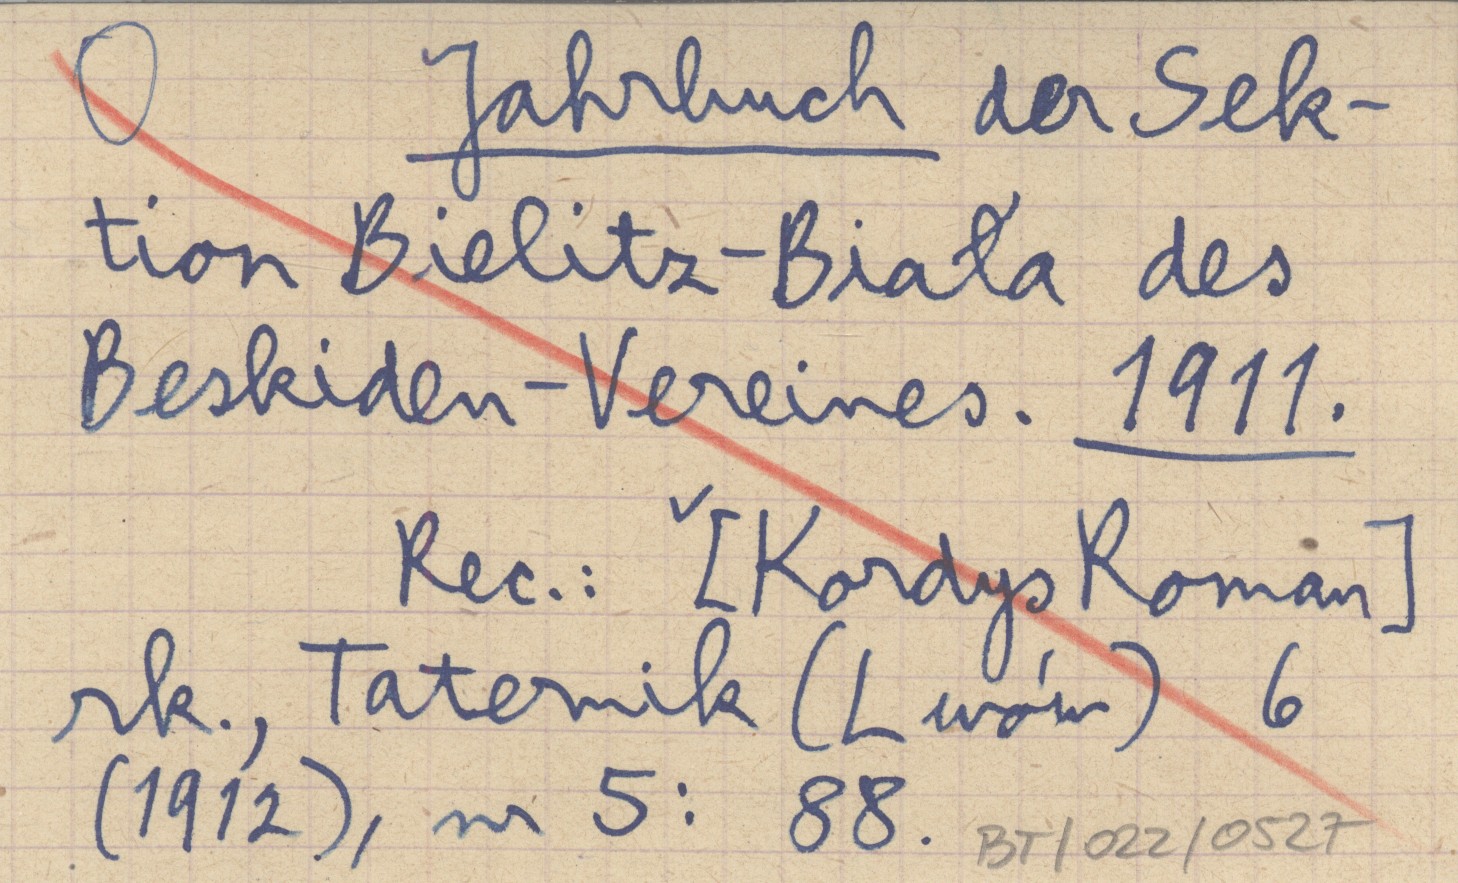 O Jahrbuch der Sek-
tion Bielitz-Biała des
Beskiden-Vereines. 1911.
Rec.: ✓[Kordys Roman]
rk., Taternik (Lwów) 6
(1912), nr 5: 88.
BT/022/0527